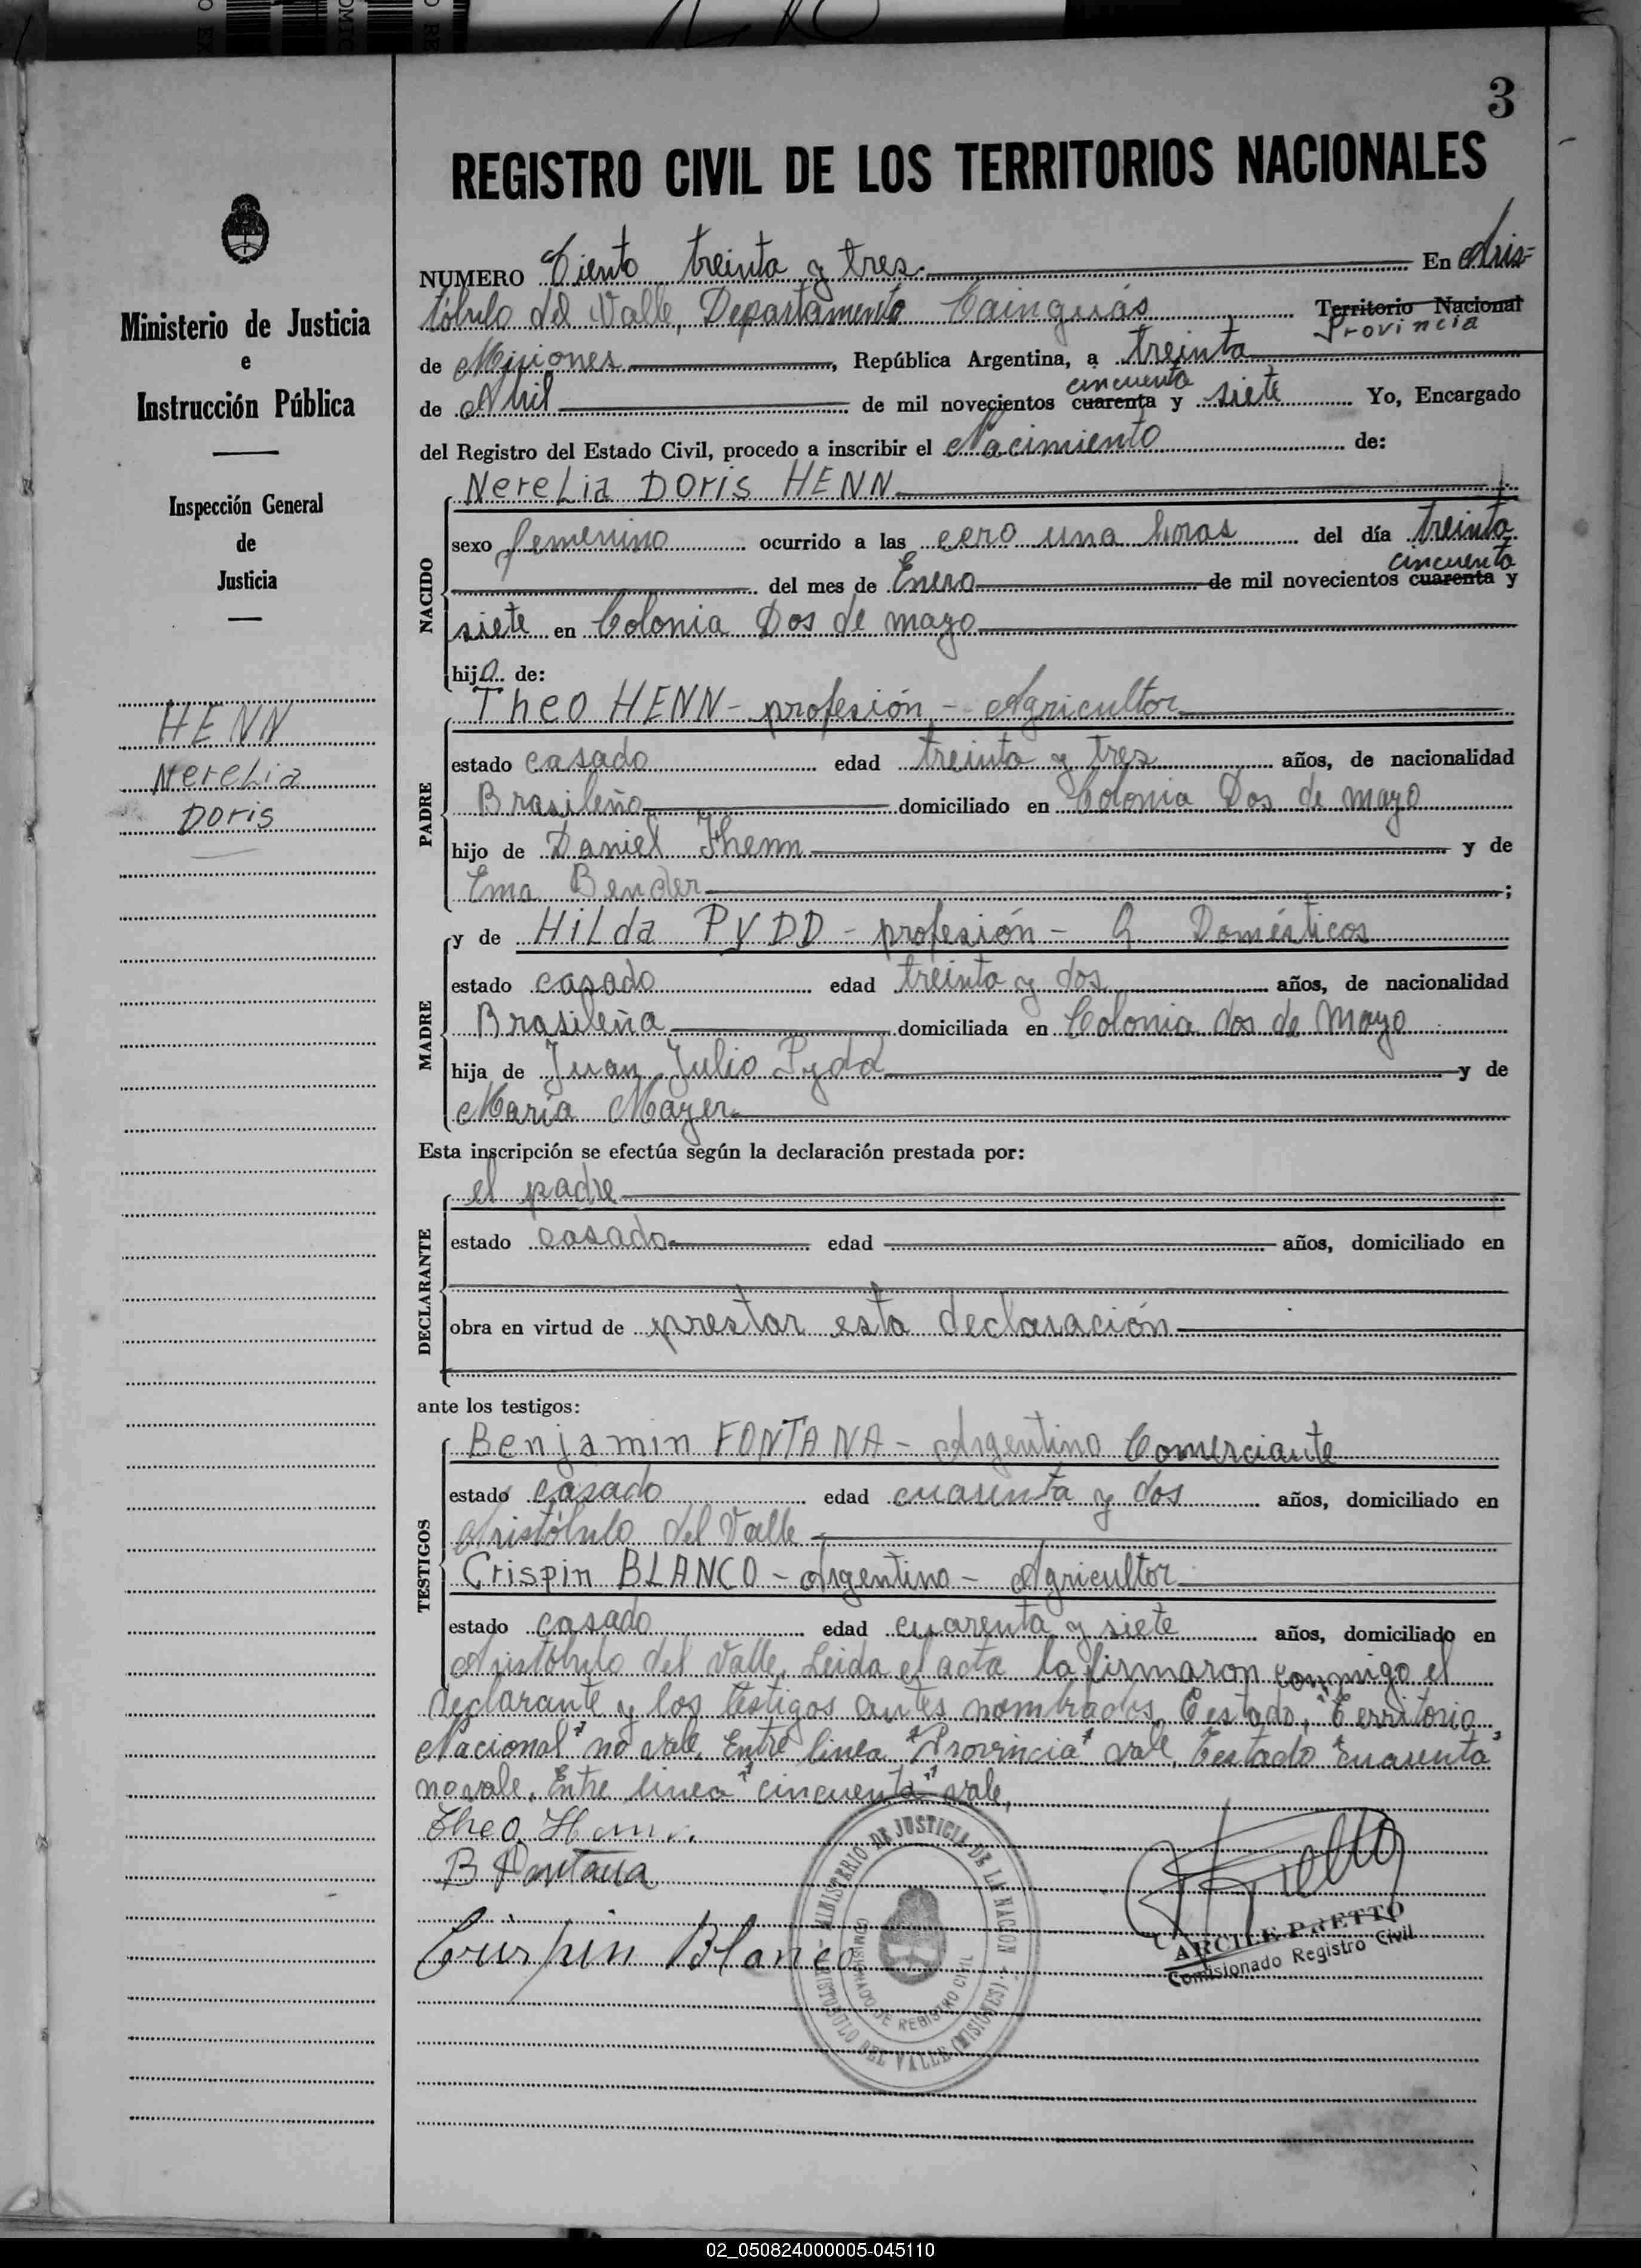 3
REGISTRO CIVIL DE LOS TERRITORIOS NACIONALES
Ministerio de Justicia
e
Instrucción Pública
Inspección General
de
Justicia
HENN
Nerelia
Doris
NUMERO Ciento treinta y tres. En Aris-
tóbulo del Valle, Departamento Cainguás Territorio Nacional
Provincia
de Misiones, República Argentina, a treinta
cincuenta
de Abril de mil novecientos cuarenta y siete Yo, Encargado
del Registro del Estado Civil, procedo a inscribir el Nacimiento de:
NACIDO
Nerelia Doris HENN
sexo femenino ocurrido a las cero una horas del día treinta
cincuenta
del mes de Enero de mil novecientos cuarenta y
siete en Colonia Dos de mayo
hija de:
PADRE
Theo HENN - profesión - Agricultor
estado casado edad treinta y tres años, de nacionalidad
Brasileño domiciliado en Colonia Dos de mayo
hijo de Daniel y de
Ema Bender ;
MADRE
y de Hilda PYDD - profesión - Q Domésticos
estado casado edad treinta y dos años, de nacionalidad
Brasileña domiciliada en Colonia dos de Mayo
hija de Juan Julio Pydd y de
María Mayer
Esta inscripción se efectúa según la declaración prestada por:
DECLARANTE
el padre
estado casado edad años, domiciliado en
obra en virtud de prestar esta declaración
ante los testigos:
TESTIGOS
Benjamin FONTANA - Argentino Comerciante
estado casado edad cuarenta y dos años, domiciliado en
Aristóbulo del Valle
Crispin BLANCO - Argentino - Agricultor
estado casado edad cuarenta y siete años, domiciliado en
Aristóbulo del Valle. Leida el acta la firmaron conmigo el
declarante y los testigos antes nombrados. Testado, "Territorio
Nacional" no vale. Entre linea "Provincia" vale, Testado "cuarenta"
no vale. Entre linea "cincuenta" vale,
Theo Henn.
B Fontana
Crispin Blanco
MINISTERIO DE JUSTICIA DE LA NACION
COMISIONADO DE REGISTRO CIVIL
ARISTOBULO DEL VALLE (MISIONES)
ARCILE PRETTO
Comisionado Registro Civil
02_050824000005-045110